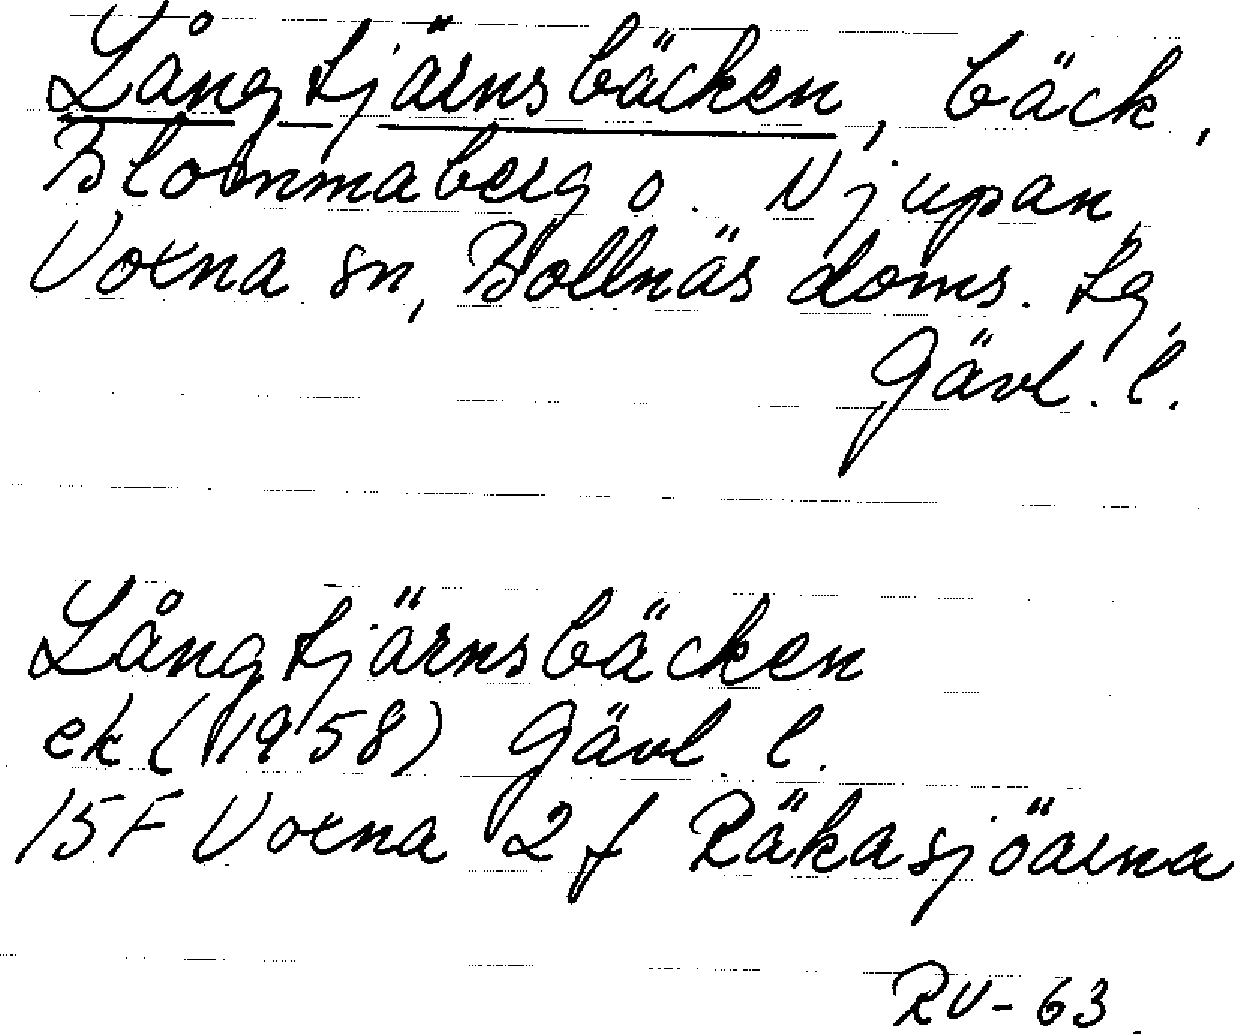 Långtjärnsbäcken, bäck,
Blommaberg o. Njupan,
Voxna sn, Bollnäs doms. lg,
Gävl. l.
Långtjärnsbäcken
ek (1958) Gävl. l.
15F Voxna 2f Räkasjöarna
RV-63.